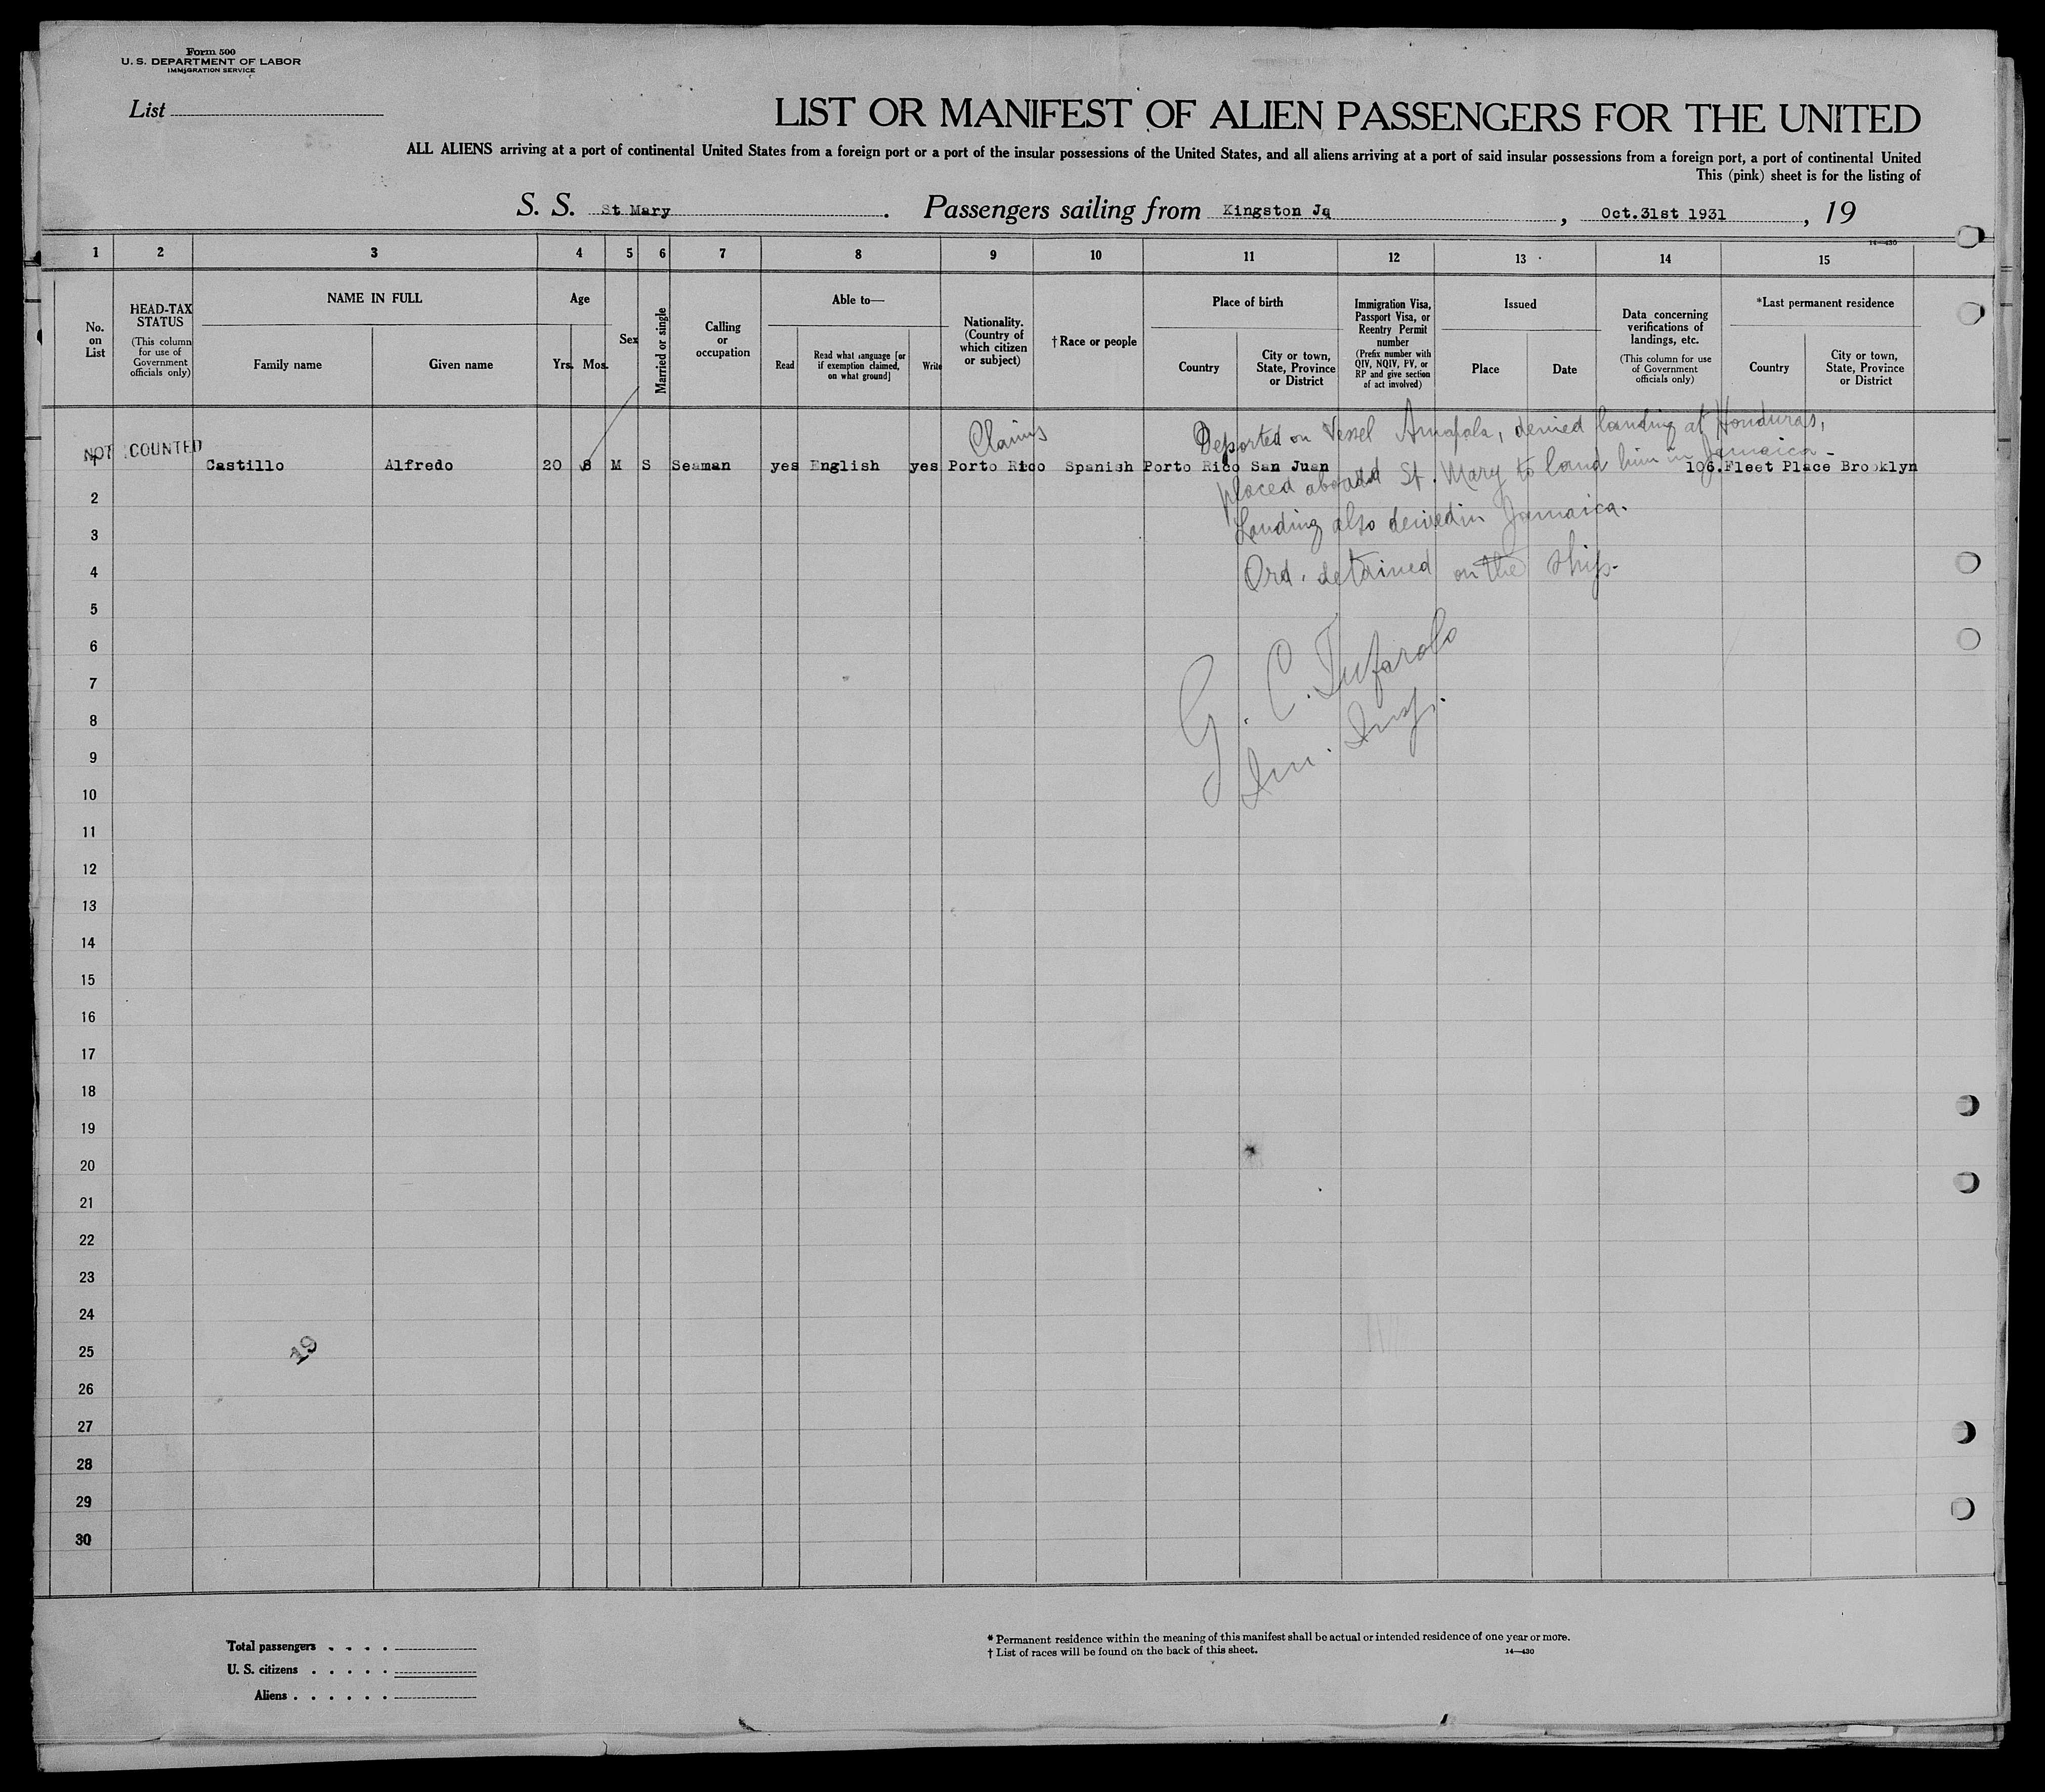 Form 500
U. S. DEPARTMENT OF LABOR
IMMIGRATION SERVICE
List
LIST OR MANIFEST OF ALIEN PASSENGERS FOR THE UNITED
ALL ALIENS arriving at a port of continental United States from a foreign port or a port of the insular possessions of the United States, and all aliens arriving at a port of said insular possessions from a foreign port, a port of continental United
This (pink) sheet is for the listing of
S. S. St Mary. Passengers sailing from Kingston Ja, Oct.31st 1931, 19
14—430
1 2 3 4 5 6 7 8 9 10 11 12 13 14 15
No. on List
HEAD-TAX STATUS
(This column for use of Government officials only)
NAME IN FULL
Family name
Given name
Age
Yrs. Mos.
Sex
Married or single
Calling or occupation
Able to—
Read
Read what language [or if exemption claimed, on what ground]
Write
Nationality. (Country of which citizen or subject)
† Race or people
Place of birth
Country
City or town, State, Province or District
Immigration Visa, Passport Visa, or Reentry Permit number
(Prefix number with QIV, NQIV, PV, or RP and give section of act involved)
Issued
Place
Date
Data concerning verifications of landings, etc.
(This column for use of Government officials only)
*Last permanent residence
Country
City or town, State, Province or District
Claims
Deported on Vessel Amapala, denied landing at Honduras,
NOT COUNTED
1 Castillo Alfredo 20 8 M S Seaman yes English yes Porto Rico Spanish Porto Rico San Juan 106.Fleet Place Brooklyn
placed aboard St. Mary to land him in Jamaica -
2
Landing also denied in Jamaica.
3
4
Ord. detained on the ship.
5
6
G. C. Tufarolo
7
8
Im. Insp.
9
10
11
12
13
14
15
16
17
18
19
20
21
22
23
24
25
19
26
27
28
29
30
Total passengers . . . .
U. S. citizens . . . . .
Aliens . . . . . .
* Permanent residence within the meaning of this manifest shall be actual or intended residence of one year or more.
† List of races will be found on the back of this sheet.
14—430